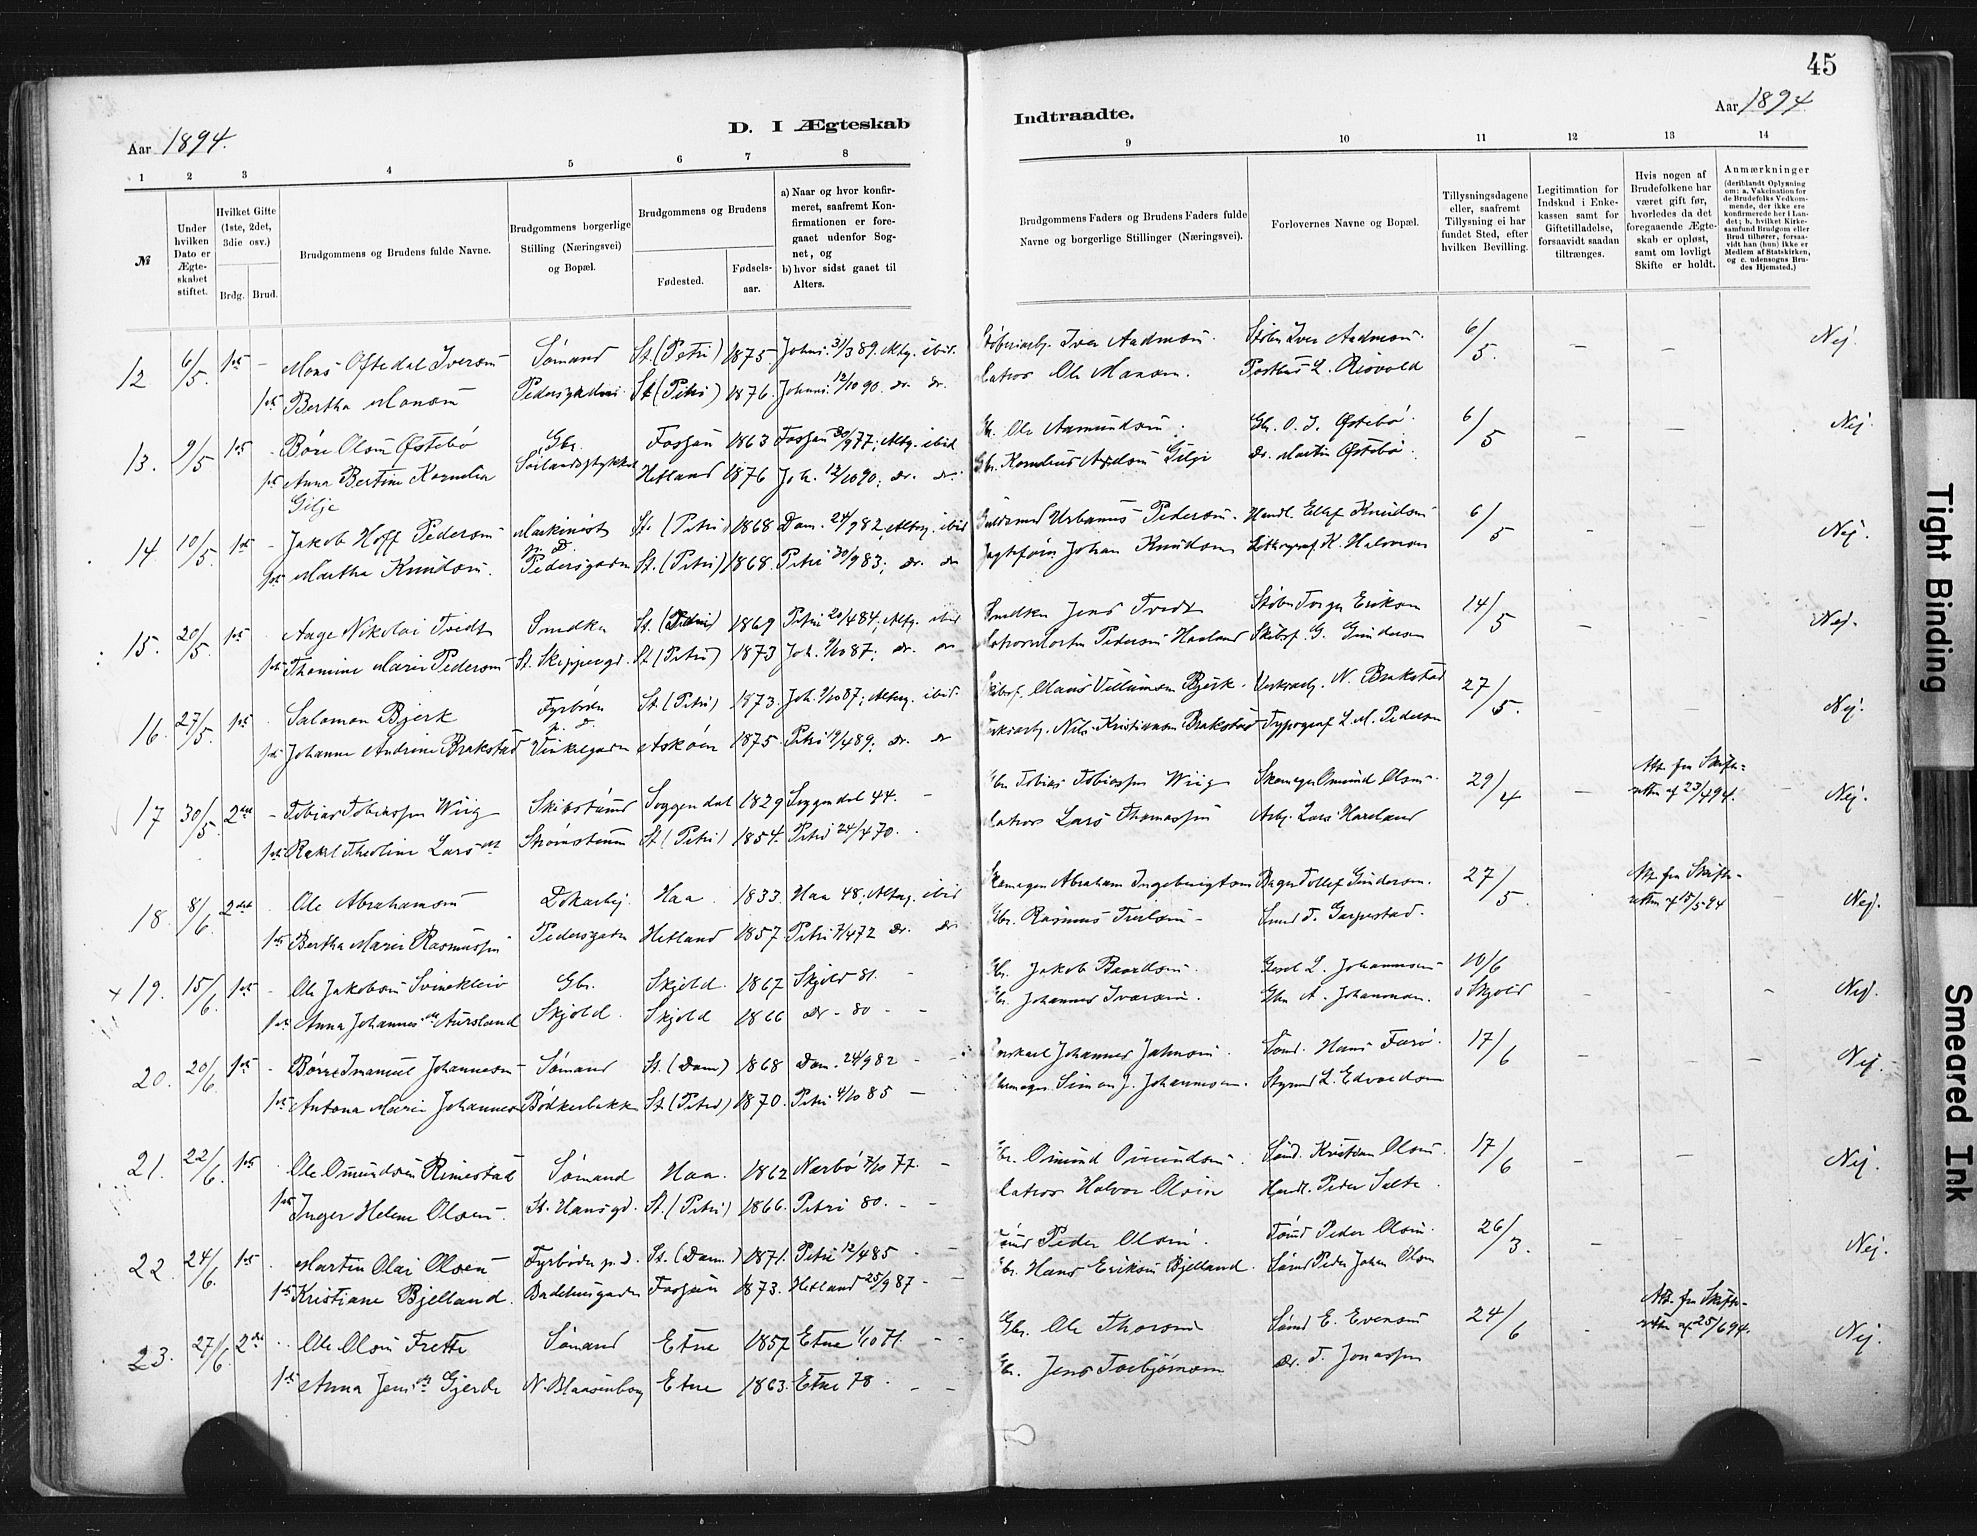 45
D. I Ægteskab Indtraadte.
Aar 1894.
Aar 1894
1 2 3 4 5 6 7 8 9 10 11 12 13 14
№
Under hvilken Dato er Ægteskabet stiftet.
Hvilket Gifte (1ste, 2det, 3die osv.)
Brdg. Brud.
Brudgommens og Brudens fulde Navne.
Brudgommens borgerlige Stilling (Næringsvei) og Bopæl.
Brudgommens og Brudens
Fødested. Fødselsaar.
a) Naar og hvor konfirmeret, saafremt Konfirmationen er foregaaet udenfor Sognet, og
b) hvor sidst gaaet til Alters.
Brudgommens Faders og Brudens Faders fulde Navne og borgerlige Stillinger (Næringsvei).
Forlovernes Navne og Bopæl.
Tillysningsdagene eller, saafremt Tillysning ei har fundet Sted, efter hvilken Bevilling.
Legitimation for Indskud i Enkekassen samt for Giftetilladelse, forsaavidt saadan tiltrænges.
Hvis nogen af Brudefolkene har været gift før, hvorledes da det foregaaende Ægteskab er opløst, samt om lovligt Skifte er holdt.
Anmærkninger (deriblandt Oplysning om: a. Vakcination for de Brudefolks Vedkommende, der ikke ere konfirmerede her i Landet; b. hvilket Kirkesamfund Brudgom eller Brud tilhører, forsaavidt han (hun) ikke er Medlem af Statskirken, og c. udensogns Brudes Hjemsted.)
12 6/5. 1ste - Mons Oftedal Iversen Sømand St. (Petri) 1875 Johs. 31/3 89. Altg. ibid. Iver Aadnesen. Iver Aadnesen. 6/5. - - Nej.
1ste Bertha Monsen St. (Petri) 1876. Johs. 12/10 90. do. do. Matros Ole Monsen.
13. 9/5 1ste - Børe Olsen Østebø Gbr. Fossan 1863 Fossan 30/9 77; Altg. ibid Gbr. Ole Aamundsen. Gbr. O. J. Østebø. 6/5 - - - Nej
1ste Anna Bertine Kornelia Gilje Hetland 1876 Joh. 12/10 90; do. do. Gbr. Kornelius Gilje do. Martin Østebø.
14. 10/5. 1ste - Jakob Hoff Pedersen Maskinist p. D. St. (Petri) 1868 Dom. 24/9 82, Altg. ibid Urbanus Pedersen. Handl. Ellef Knudsen 6/5 - - - Nej.
1ste Martha Knudsen. Pedersgaden St. (Petri) 1868. Petri 30/9 83; do. do Johan Knudsen Lithograf K. Halvorsen
15. 20/5. 1ste Aage Nikolai Tvedt Smedkn St. (Petri) 1869 Petri 20/4 84, Altg. ibid Smedkn Jens Tvedt Torger Eriksen 14/5 - - - Nej.
1ste Thomine Marie Pedersen St. Skippergd. St. (Petri) 1873 Joh. 87; do. do Morten Pedersen Haaland Skibsf. G. Gundersen
16. 27/5. 1ste Salomon Bjerk Fyrbøder p. D. St. (Petri) 1873. Joh. 87; Altg. ibid. Skibsf. Villumsen Bjerk. N. Brakstad 27/5. - - Nej.
1ste Johanne Andrine Brakstad Askøen 1875. Petri 19/4 89; do. do Nils Kristiansen Brakstad Typograf L. M. Pedersen
17 30/5. 2det - Tobias Tobiassen Wiig Soggendal 1829 Soggendal 44. - Gbr Tobias Tobiassen Wiig Skomager Omund Olsen. 29/4 - Att. fra Skifteretten af 23/4 94. - Nej.
1ste Rakel Theoline Larsdt St. (Petri) 1854. Petri 24/4 70. - Matros Lars Thomassen Arb. Lars Haaland
18. 8/6. 2det Ole Abrahamsen Dokarbej. Haa 1833. Haa 48; Altg. ibid Skomager Abraham Ingebrigtsen Bager Tollef Gundersen. 27/5. - Att. fra Skifteretten af 15/5 94 Nej.
1ste Bertha Marie Rasmussen Pedersgaden Hetland 1857. Petri 72 do. do Gbr. Rasmus Smed T. Garpestad.
19. 15/6. 1ste - Ole Jakobsen Svinekleiv Gbr. Skjold. 1867 Skjold 81. - Gbr. Jakob Baardsen. L. Johannesen 10/6 i Skjold - - - Nej.
1ste Anna Johannesdt Aursland Skjold. Skjold 1866 do - 80 - - Gbr. Johannes Iversen. Gbr A. Johannesen.
20. 20/6. 1ste - Børre Imanuel Johannesen Sømand St. (Dom) 1868 Dom. 24/9 82 - - Johannes Jahnsen. Hans Farø. 17/6 - - - Nej.
1ste Antona Marie Johannesen Bødkerbakken St. (Petri) 1870. Petri 4/10 85 - Skomager Simon J. Johannesen. Styrmd L. Edvardsen
21. 22/6. 1ste Ole Omundsen Rimestad Sømand Haa. 1862 Nærbø 7/10 77. - Gbr. Omund Omundsen. Sømd. Kristian Olsen. 17/6 - - Nej.
1ste Inger Helene Olsen. St. Hansgd. St. (Petri) 1866. Petri 80. - - Matros Halvor Olsen Handl. Peder Salte.
22. 24/6. 1ste Martin Olai Olsen Fyrbøder p. D. St. (Dom.) 1871. Petri 12/4 85 - - Peder Olsen. Peder Olsen. 26/3. - - Nej.
1ste Kristiane Bjelland. Fossan 1873. Hetland 25/9 87 - - Gbr. Hans Eriksen Bjelland. Sømd Peder Johan Olsen
23. 27/6. 2det Ole Olsen Frette Sømand Etne 1857 Etne 1/10 71. - - Gbr. Ole Thorsen Sømd E. Evensen 24/6 - Att. fra Skifteretten af 25/6 94. Nej.
1ste Anna Jensdt Gjerde N. Blaasenborg Etne 1863. Etne 78. - - Gbr. Jens Torbjørnsen do. T. Jonassen
Tight Binding
Smeared Ink